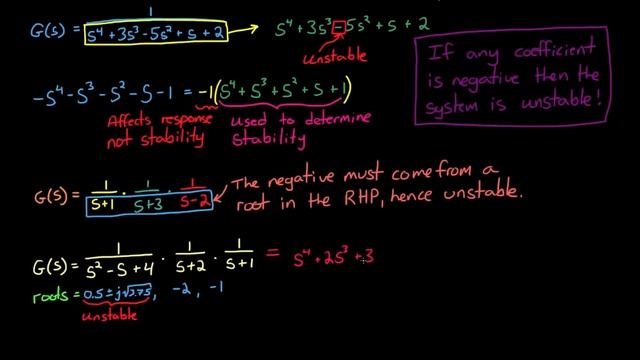 G(s) = 1 / (s⁴ + 3s³ - 5s² + s + 2) → s⁴ + 3s³ - 5s² + s + 2
unstable
If any coefficient
is negative then the
system is unstable!
-s⁴ - s³ - s² - s - 1 = -1(s⁴ + s³ + s² + s + 1)
Affects response
not stability
used to determine
stability
G(s) = 1/(s+1) · 1/(s+3) · 1/(s-2)
The negative must come from a
root in the RHP, hence unstable.
G(s) = 1/(s² - s + 4) · 1/(s+2) · 1/(s+1) = s⁴ + 2s³ + 3
roots = 0.5 ± j√3.75, -2, -1
unstable